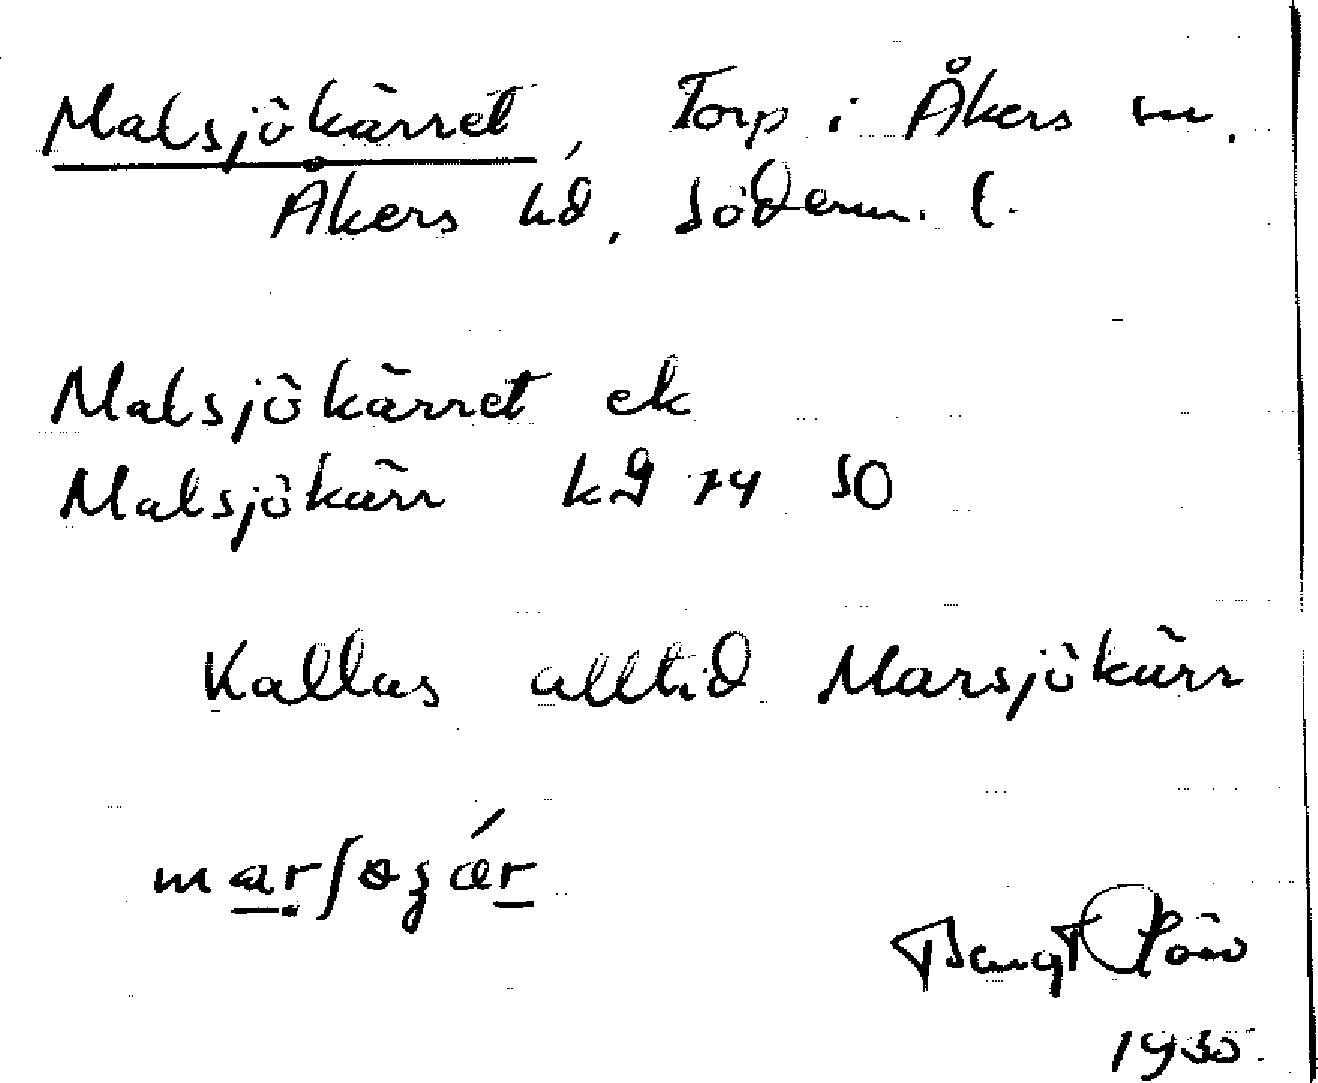 Malsjökärret, Torp i Åkers sn.
Åkers hd, Söderm. l.
Malsjökärret ek
Malsjökärr kg 74 SO
Kallas alltid Marsjökärr
Bengt
1935.